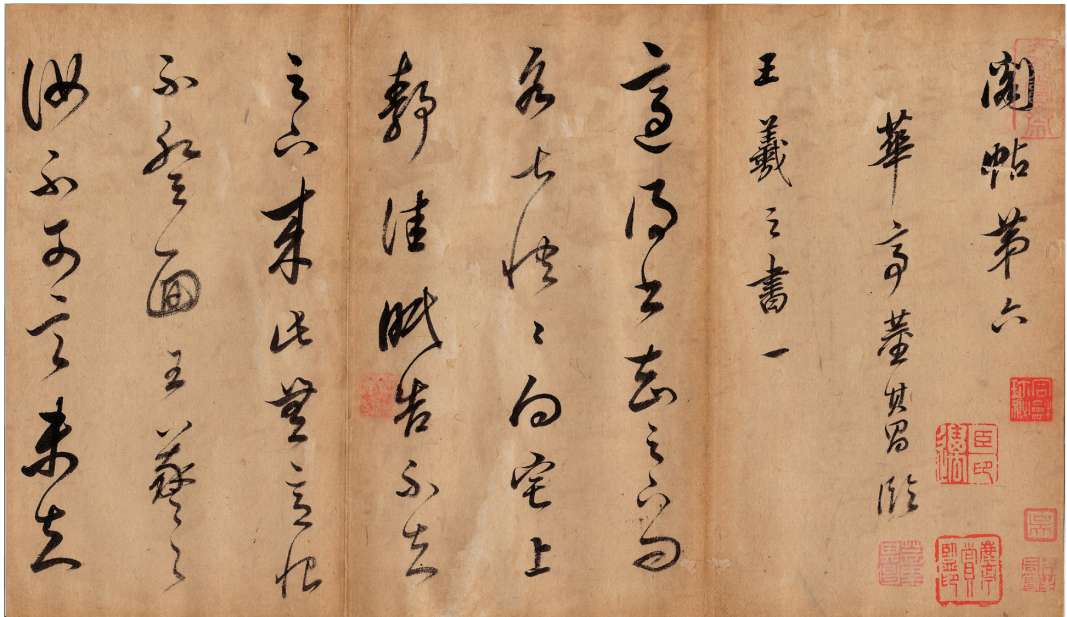 閣帖第六
華亭董其昌臨
王羲之書一
適得書知足下問
快〻向宅上
靜佳眠不知
足下來無意恨
不面王羲之
汝不可言未知